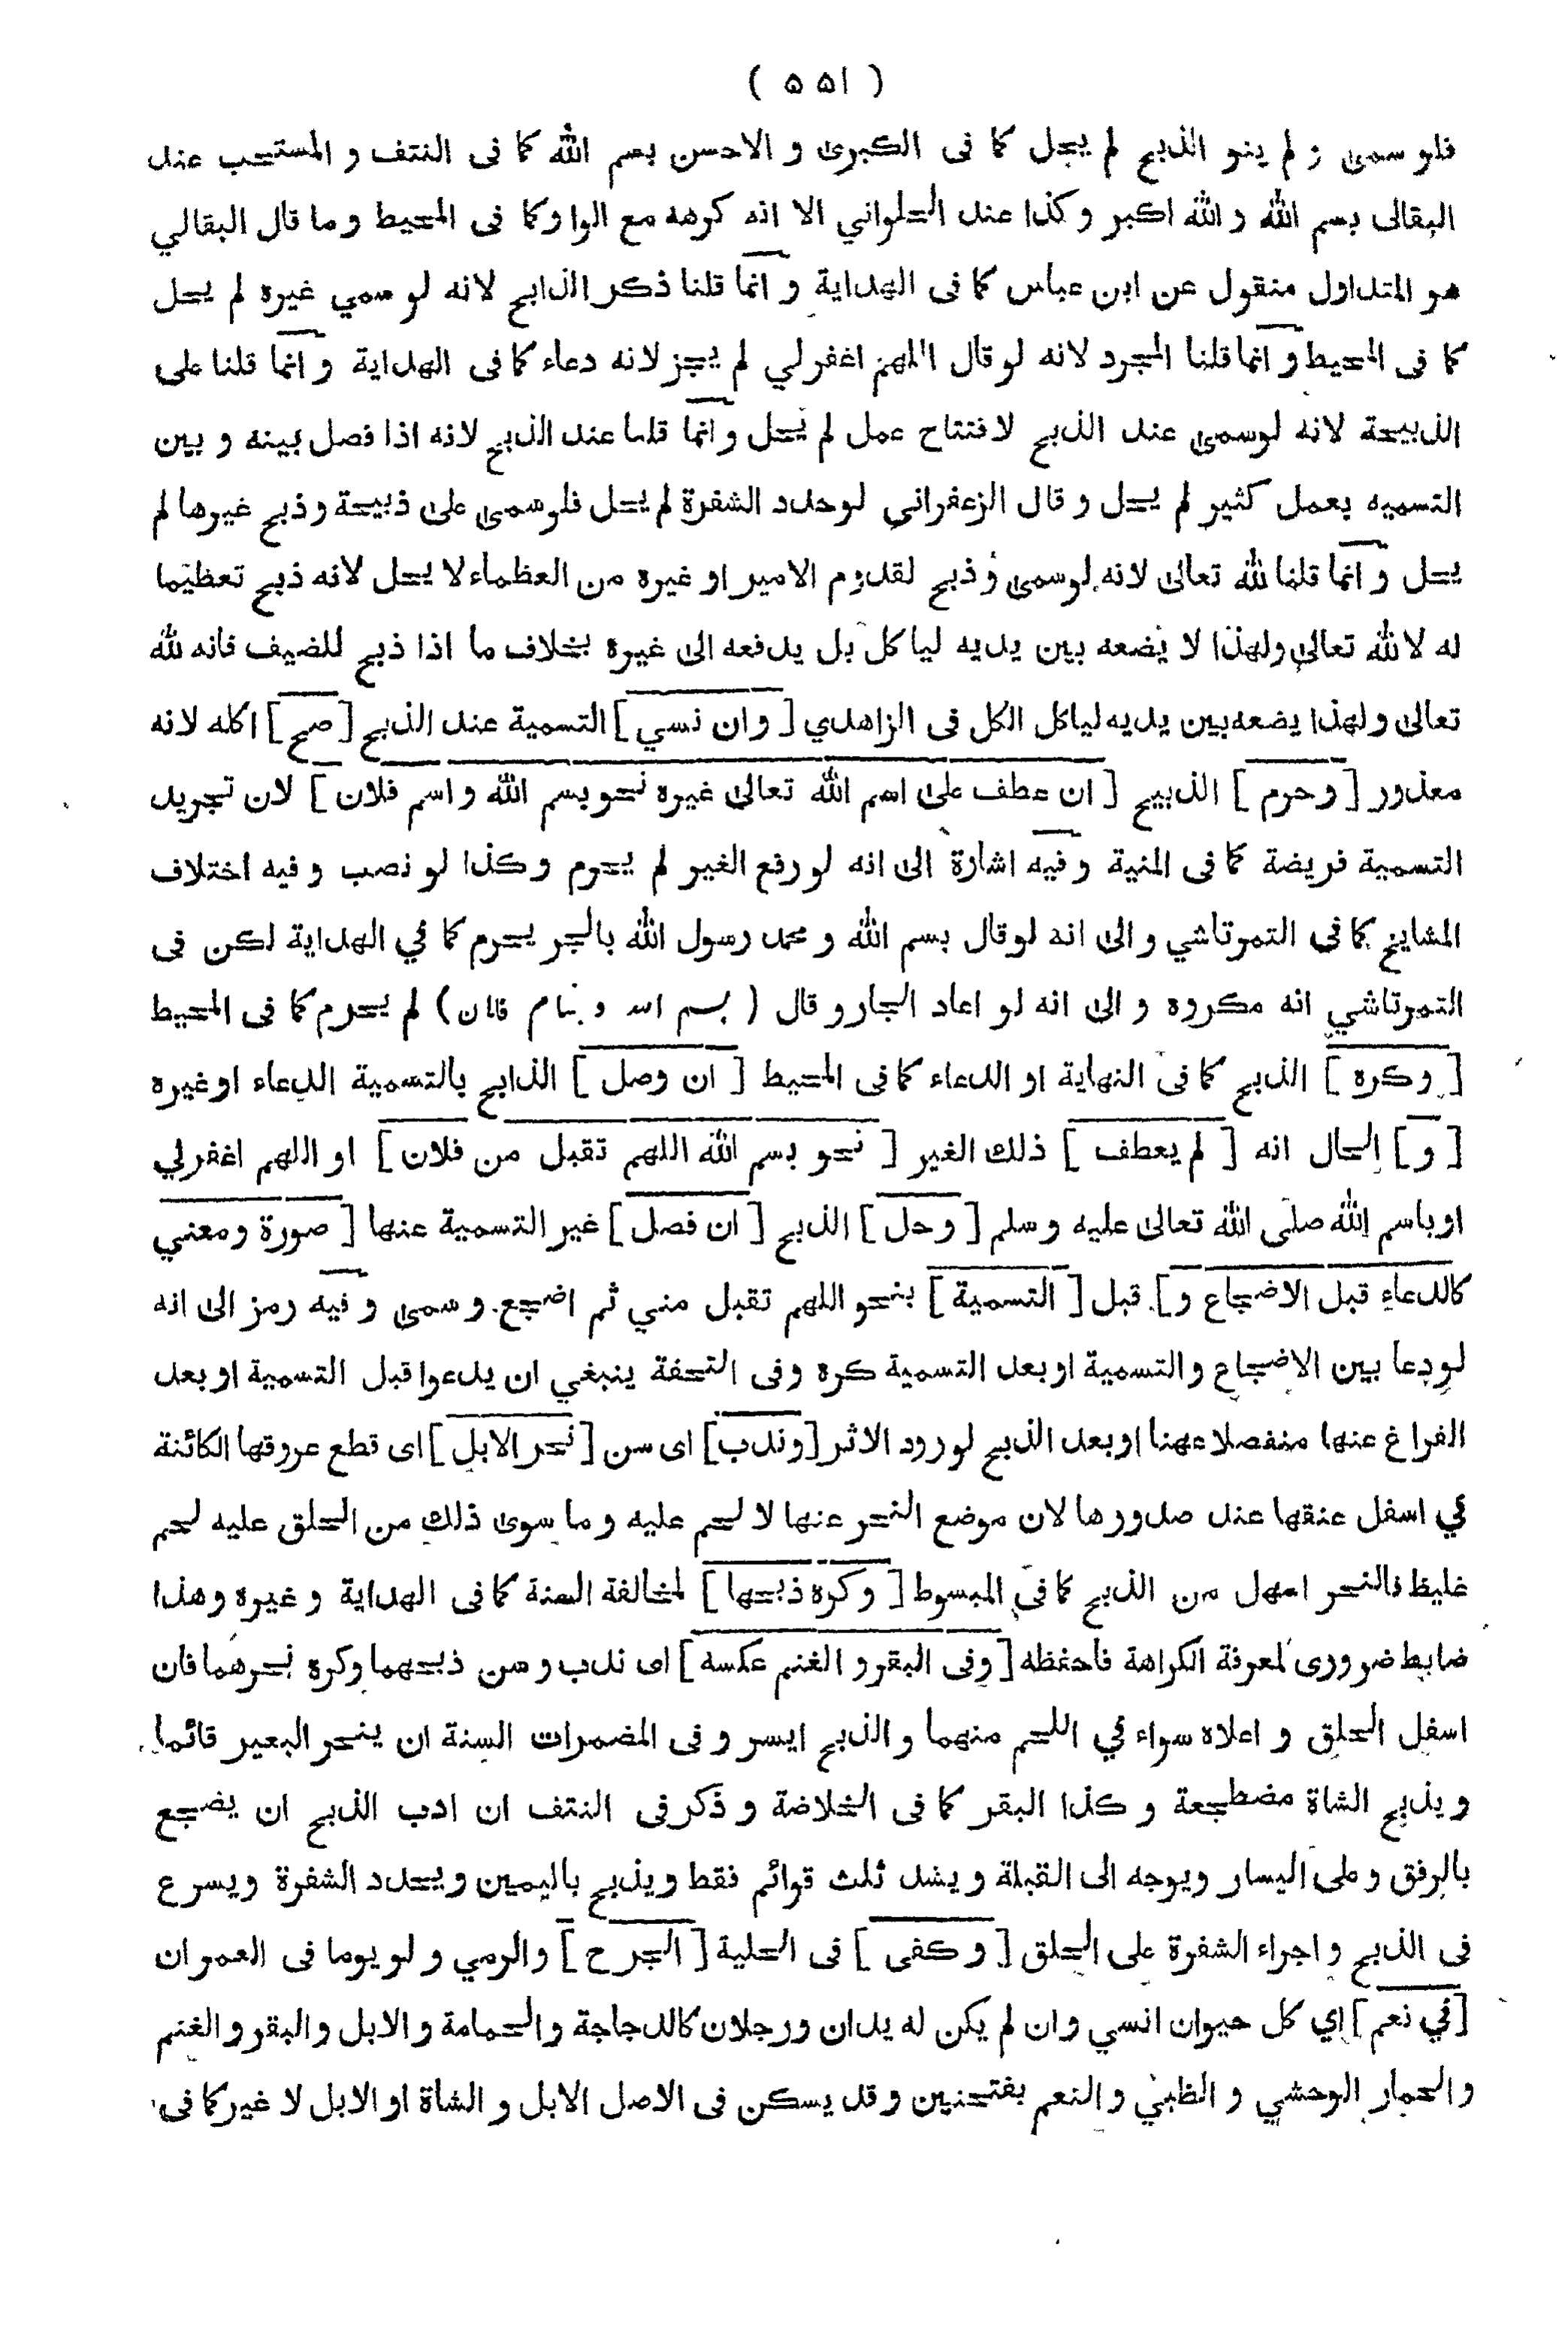 ( ۵۵۱ )
فلو سمى و لم ينو الذبح لم يحل كما فى الكبرى و الاحسن بسم الله كما فى النتف و المستحب عند
البقالى بسم الله و الله اكبر و كذا عند الحلواني الا انه كرهه مع الواو كما فى المحيط و ما قال البقالي
هو المتداول منقول عن ابن عباس كما فى الهداية و انما قلنا ذكر الذابح لانه لو سمي غيره لم يحل
كما فى المحيط و انما قلنا المجرد لانه لو قال اللهم اغفر لي لم يجز لانه دعاء كما فى الهداية و انما قلنا على
الذبيحة لانه لو سمى عند الذبح لافتتاح عمل لم يحل و انما قلنا عند الذبح لانه اذا فصل بينه و بين
التسميه بعمل كثير لم يحل و قال الزعفراني لو حدد الشفرة لم يحل فلو سمى على ذبيحة و ذبح غيرها لم
يحل و انما قلنا لله تعالى لانه لو سمى و ذبح لقدوم الامير او غيره من العظماء لا يحل لانه ذبح تعظيما
له لا لله تعالى ولهذا لا يضعه بين يديه لياكل بل يدفعه الى غيره بخلاف ما اذا ذبح للضيف فانه لله
تعالى ولهذا يضعه بين يديه لياكل الكل فى الزاهدي [ و ان نسي ] التسمية عند الذبح [ صح ] اكله لانه
معذور [ و حرم ] الذبيح [ ان عطف على اسم الله تعالى غيره نحو بسم الله و اسم فلان ] لان تجريد
التسمية فريضة كما فى المنية و فيه اشارة الى انه لو رفع الغير لم يحرم و كذا لو نصب و فيه اختلاف
المشايخ كما فى التمرتاشي و الى انه لو قال بسم الله و محمد رسول الله بالجر يحرم كما في الهداية لكن فى
التمرتاشي انه مكروه و الى انه لو اعاد الجار و قال ( بسم الله و بنام فلان ) لم يحرم كما فى المحيط
[ و كره ] الذبح كما فى النهاية او الدعاء كما فى المحيط [ ان وصل ] الذابح بالتسمية الدعاء او غيره
[ و ] الحال انه [ لم يعطف ] ذلك الغير [ نحو بسم الله اللهم تقبل من فلان ] او اللهم اغفر لي
او باسم الله صلى الله تعالى عليه و سلم [ و حل ] الذبح [ ان فصل ] غير التسمية عنها [ صورة و معني
كالدعاء قبل الاضجاع و ] قبل [ التسمية ] بنحو اللهم تقبل مني ثم اضجع و سمى و فيه رمز الى انه
لو دعا بين الاضجاع و التسمية او بعد التسمية كره و فى التحفة ينبغي ان يدعوا قبل التسمية او بعد
الفراغ عنها منفصلا عنها او بعد الذبح لورود الاثر [ و ندب ] اى سن [ نحر الابل ] اى قطع عروقها الكائنة
في اسفل عنقها عند صدورها لان موضع النحر عنها لا لحم عليه و ما سوى ذلك من الحلق عليه لحم
غليظ فالنحر اسهل من الذبح كما فى المبسوط [ و كره ذبحها ] لمخالفة السنة كما فى الهداية و غيره وهذا
ضابط ضرورى لمعرفة الكراهة فاحفظه [ وفى البقر و الغنم عكسه ] اى ندب و سن ذبحهما وكره نحرهما فان
اسفل الحلق و اعلاه سواء في اللحم منهما و الذبح ايسر و فى المضمرات السنة ان ينحر البعير قائما
و يذبح الشاة مضطجعة و كذا البقر كما فى الخلاصة و ذكر فى النتف ان ادب الذبح ان يضجع
بالرفق و على اليسار ويوجه الى القبلة و يشد ثلث قوائم فقط و يذبح باليمين و يحدد الشفرة ويسرع
فى الذبح و اجراء الشفرة على الحلق [ و كفى ] فى الحلية [ الجرح ] والرمي و لو يوما فى العمران
[ في نعم ] اي كل حيوان انسي و ان لم يكن له يدان ورجلان كالدجاجة والحمامة و الابل و البقر و الغنم
و الحمار الوحشي و الظبي و النعم بفتحتين و قد يسكن فى الاصل الابل و الشاة او الابل لا غير كما فى